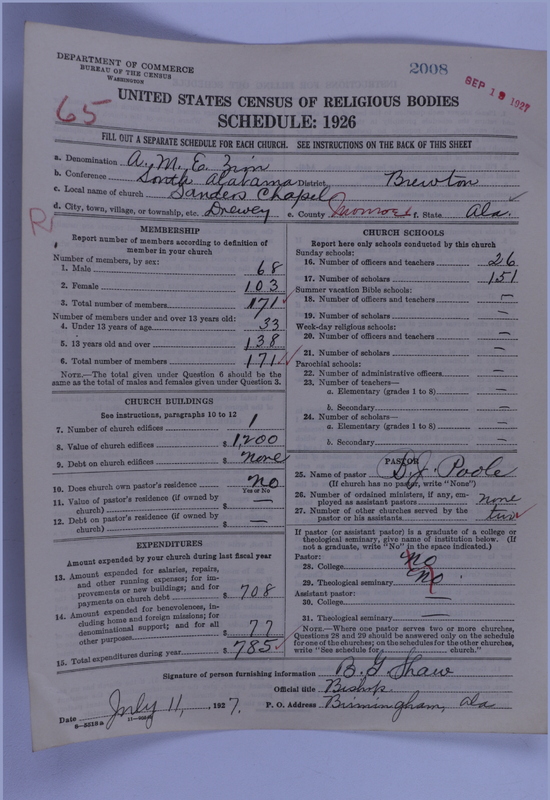 DEPARTMENT OF COMMERCE
BUREAU OF THE CENSUS
WASHINGTON
2008
SEP 13 1927
65
UNITED STATES CENSUS OF RELIGIOUS BODIES
SCHEDULE: 1926
FILL OUT A SEPARATE SCHEDULE FOR EACH CHURCH. SEE INSTRUCTIONS ON THE BACK OF THIS SHEET
a. Denomination A. M. E. Zion
b. Conference South Alabama District Brewton
c. Local name of church Sanders Chapel
d. City, town, village, or township, etc. Drewey e. County Monroe f. State Ala.
R
MEMBERSHIP
Report number of members according to definition of
member in your church
Number of members, by sex:
1. Male 68
2. Female 103
3. Total number of members. 171
Number of members under and over 13 years old:
4. Under 13 years of age 33
5. 13 years old and over 138
6. Total number of members 171
NOTE.—The total given under Question 6 should be the
same as the total of males and females given under Question 3.
CHURCH BUILDINGS
See instructions, paragraphs 10 to 12
7. Number of church edifices 1
8. Value of church edifices $ 1,200
9. Debt on church edifices $ None
10. Does church own pastor's residence No
Yes or No
11. Value of pastor's residence (if owned by
church) $ —
12. Debt on pastor's residence (if owned by
church) $ —
EXPENDITURES
Amount expended by your church during last fiscal year
13. Amount expended for salaries, repairs,
and other running expenses; for im-
provements or new buildings; and for
payments on church debt $ 708
14. Amount expended for benevolences, in-
cluding home and foreign missions; for
denominational support; and for all
other purposes $ 77
15. Total expenditures during year $ 785
CHURCH SCHOOLS
Report here only schools conducted by this church
Sunday schools:
16. Number of officers and teachers 26
17. Number of scholars 151
Summer vacation Bible schools:
18. Number of officers and teachers —
19. Number of scholars —
Week-day religious schools:
20. Number of officers and teachers —
21. Number of scholars —
Parochial schools:
22. Number of administrative officers —
23. Number of teachers—
a. Elementary (grades 1 to 8) —
b. Secondary —
24. Number of scholars—
a. Elementary (grades 1 to 8) —
b. Secondary —
PASTOR
25. Name of pastor Poole
(If church has no pastor, write "None")
26. Number of ordained ministers, if any, em-
ployed as assistant pastors none
27. Number of other churches served by the
pastor or his assistants two
If pastor (or assistant pastor) is a graduate of a college or
theological seminary, give name of institution below. (If
not a graduate, write "No" in the space indicated.)
Pastor:
28. College No
29. Theological seminary No
Assistant pastor:
30. College —
31. Theological seminary —
NOTE.—Where one pastor serves two or more churches,
Questions 28 and 29 should be answered only on the schedule
for one of the churches; on the schedules for the other churches,
write "See schedule for church."
Signature of person furnishing information B. G. Shaw
Official title Bishop.
Date July 11, 1927. P. O. Address Birmingham, Ala